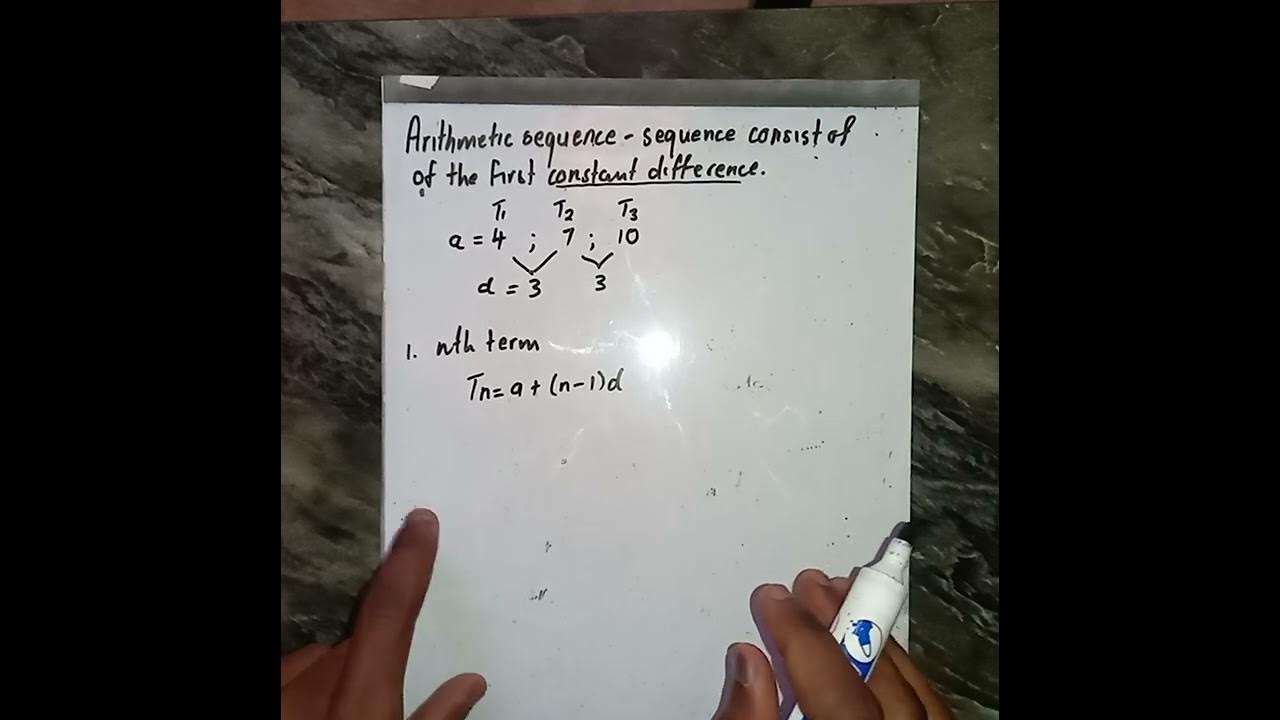 Arithmetic sequence - sequence consist of
of the first constant difference.
T1 T2 T3
a = 4 ; 7 ; 10
d = 3 3
1. nth term
Tn = a + (n-1)d